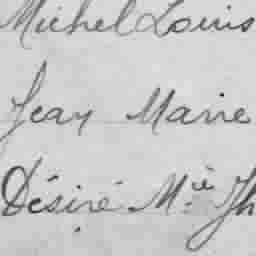 Michel Louis
Jean Marie
Désiré M.ie Jh